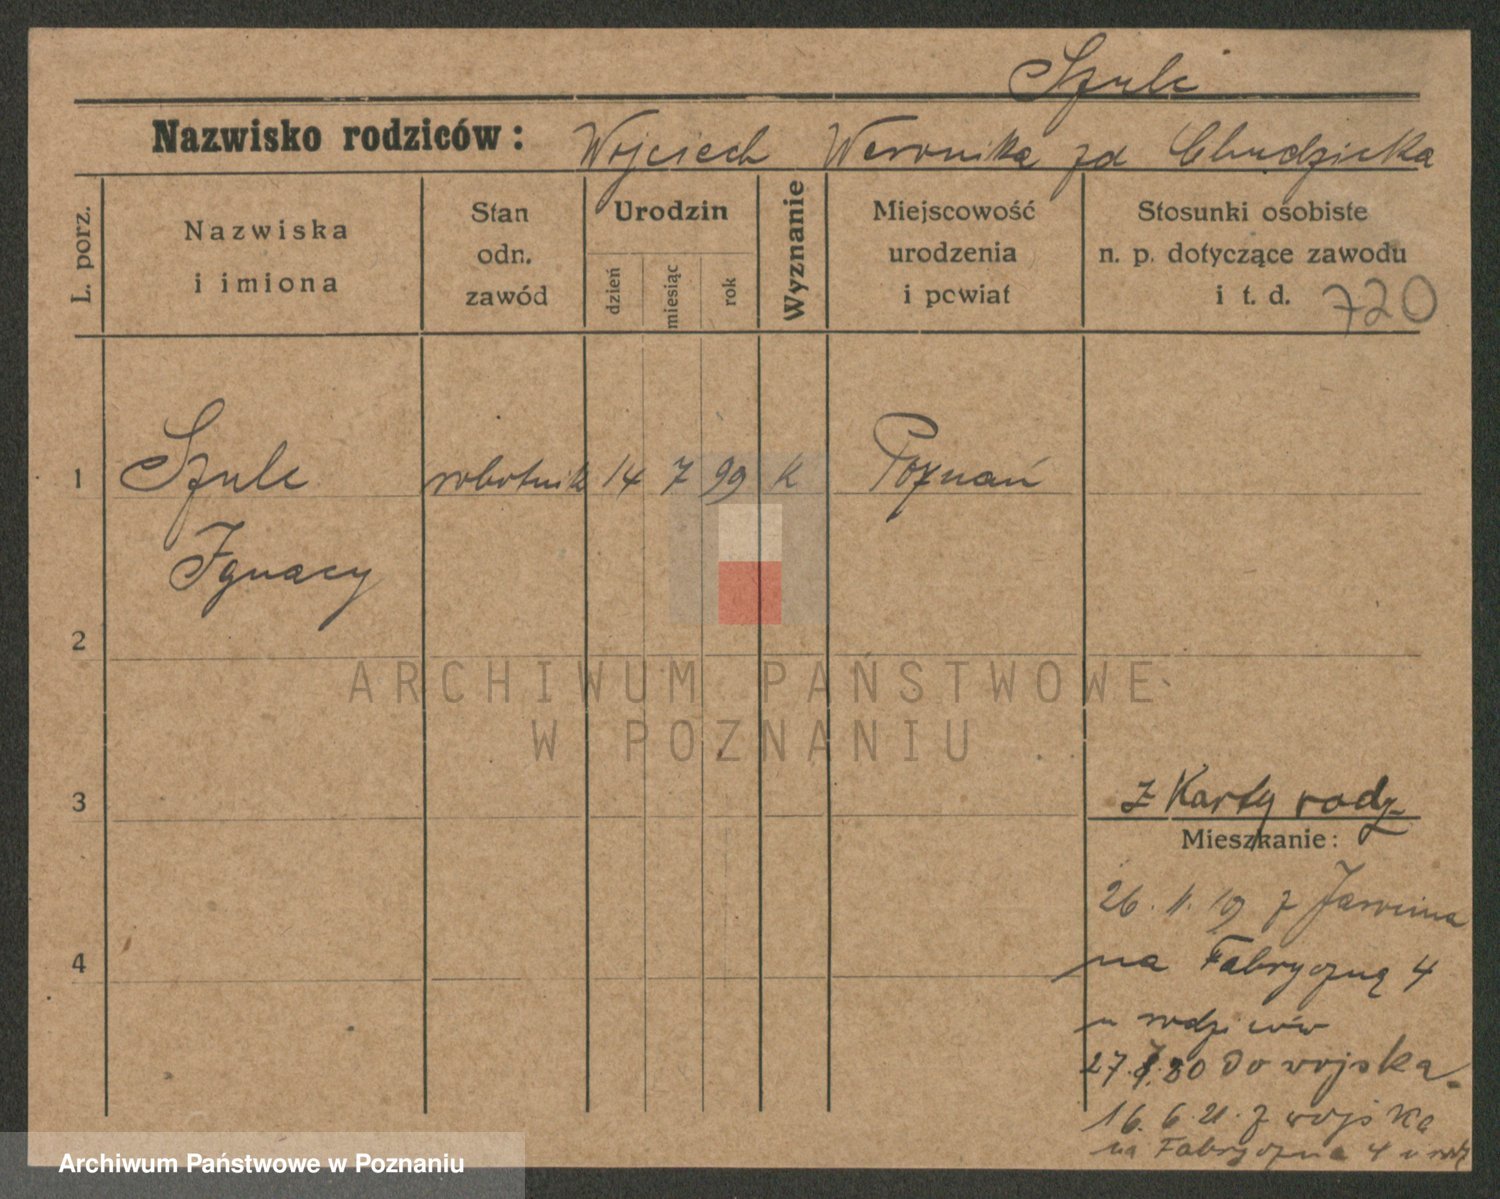 Szulc
Nazwisko rodziców: Wojciech Weronika zd Chudzicka
L. porz.
Nazwiska
i imiona
Stan
odn.
zawód
Urodzin
dzień
miesiąc
rok
Wyznanie
Miejscowość
urodzenia
i powiat
Stosunki osobiste
n. p. dotyczące zawodu
i t. d. 720
1 Szulc robotnik 14 7 99 k Poznań
Ignacy
2
ARCHIWUM PAŃSTWOWE
W POZNANIU
3 z Karty rodz
Mieszkanie:
26. 11. 19 z
4 na Fabryczną 4
u rodziców
27. 20 do wojska
16. 6. 21. z wojska
na Fabryczna 4 u rodz
Archiwum Państwowe w Poznaniu